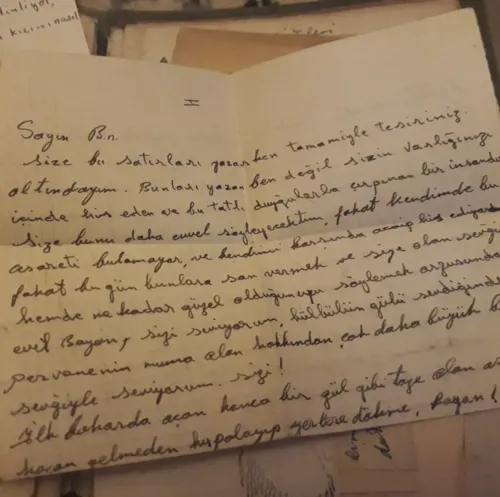 dinliyor,
II
Sayın Bn.
Size bu satırları yazarken tamamiyle tesiriniz
altındayım. Bunları yazan ben değil sizin varlığınızı
içinde his eden ve bu tatlı duygularla çırpınan bir insandır
Size bunu daha evvel söyleyecektim, fakat kendimde bu
cesareti bulamıyor, ve kendimi karşınızda
fakat bu gün bunlara son vermek ve size olan
hemde ne kadar güzel olduğunuzu söylemek arzusunda
evet Bayan, sizi seviyorum, bülbülün gülü sevdiğinden
pervanenin muma olan hakkından çok daha büyük bir
sevgiyle seviyorum sizi!
İlk baharda açan konca bir gül gibi taze olan
hazan gelmeden hırpalayıp yerlere dökme, Bayan!